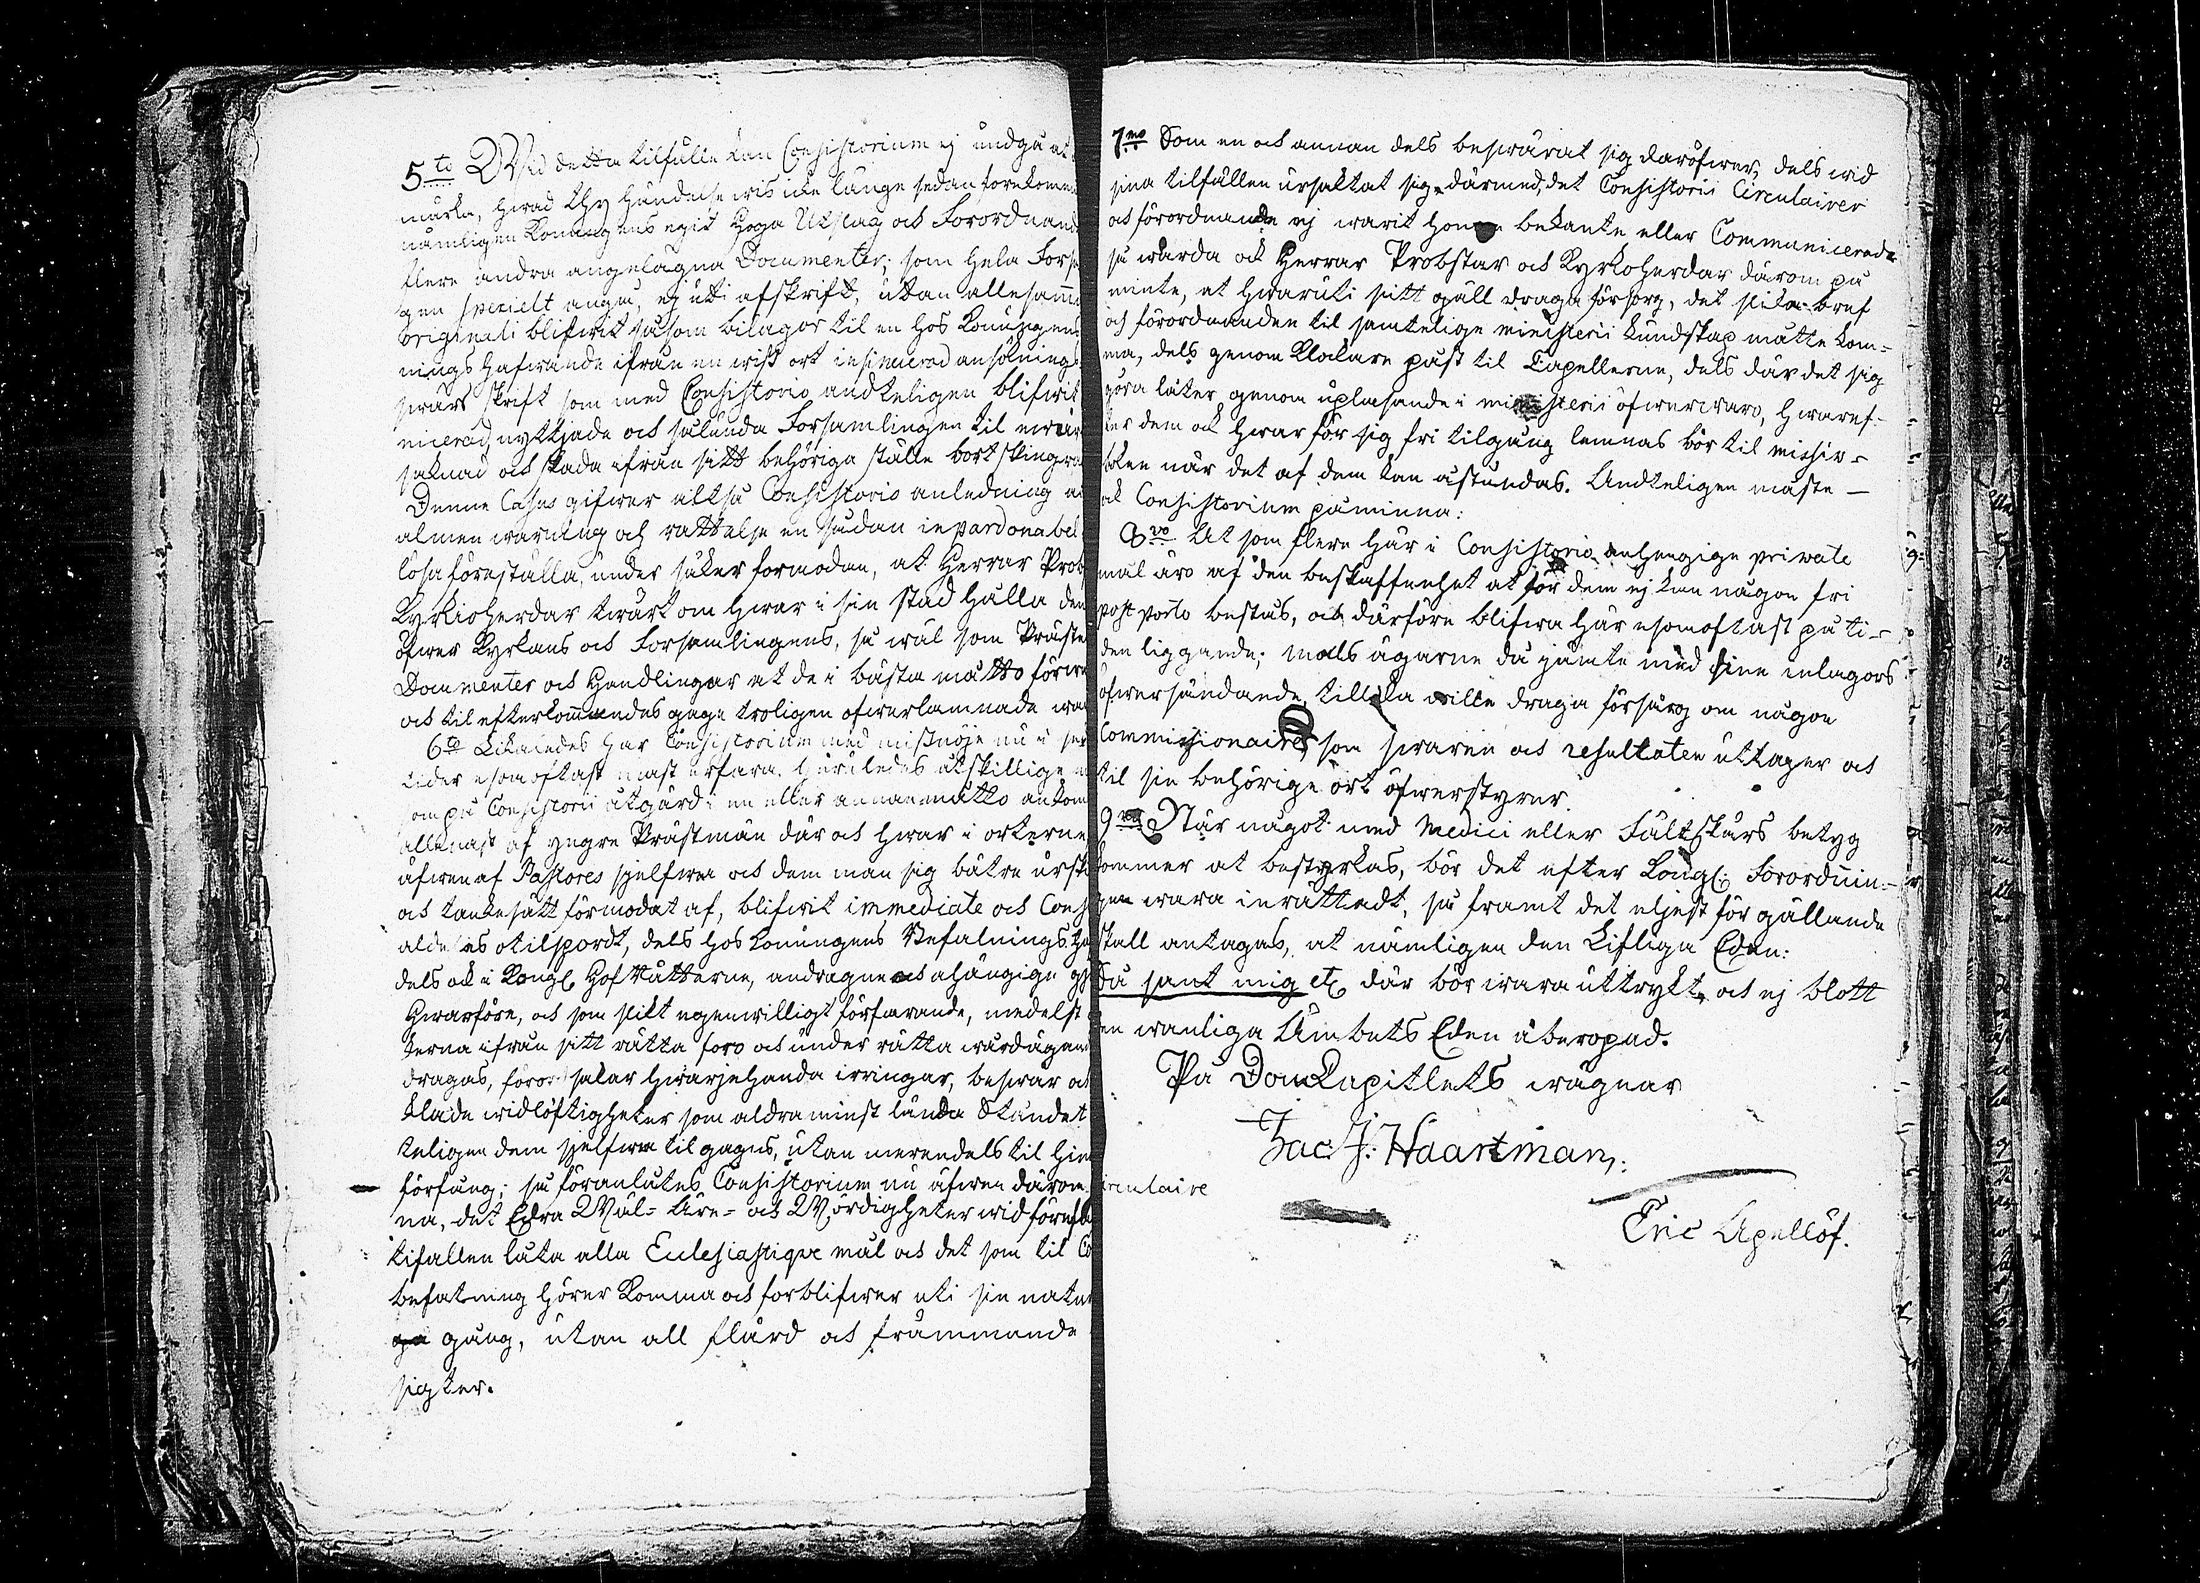 5to Wid detta tilfälle kan Consistorium ej undgå at
märka, hwad thy händelsewis icke länge sedan förekommi
nämligen Konungens egit höga Utslag och Förordnand
flere andra angelägna Documenter, som hela Förs
gen specielt angå, ej uti afskrift, utan allesamm
originali blifwit såsom bilagor til en hos Konungens
nings hafwande ifrån en wiss ort insinuerad ansöknings
swärs skrift som med Consistorio ändteligen blifwit
nicerad nyttjade och sålunda Församlingen til
saknad och skada ifrån sitt behöriga ställe bortskingra
Denne Casus gifwer altså Consistorio anledning a
almen warning och rättelse en sådan inpardonabel
lösa föreställa, under säker förmodan, at Herrar Prob
Kyrkioherdar twärt om hwar i sin stad hålla den
öfwer Kyrkans och Församlingens, så wäl som Präste
Documenter och Handlingar at de i bästa måtto förwa
och til efterkommandes gagn troligen öfwerlämnade wa
6to Likaledes har Consistorium med missnöje nu i se
tider esomoftast måst erfara, huruledes åtskillige
om på Consistorii åtgärd i en eller annan måtto ankom
allenast af yngre Prästmän där och hwar i orterne
äfwen af Pastores sjelfwa och dem man sig bätre
och tankesätt förmodat af, blifwit immediate och Cons
aldeles otilspordt, dels hos Konungens Befalnings Ha
dels ock i Kongl. HofRätterne, andragne och anhängige
Hwarföre, och som slikt egenwilligt förfarande, medelst
terna ifrån sitt rätta foro och under rätta
dragas, förorsakar hwarjehanda irringar, beswär och
klade widlöftigheter som aldraminst lända Ståndet
teligen dem sjelfwa til gagns, utan merendels til
förfång; så föranlåtes Consistorium nu äfwen därom
na, det Edra Wäl- Äre- och Wördigheter wid
tifallen låta alla Ecclesiastique mål och det som til Co
befatning hörer komma och förblifwer uti sin natur
gång, utan all flärd och främmande
sigter.
7mo Som en och annan dels beswärat sig däröfwer, dels wid
sina tilfällen ursaktat sig därmed, det Consistorii Circulairer
och förordnande ej warit honom bekante eller Communicerade
så warda ock Herrar Probstar och Kyrkoherdar därom på
minte, at hwaruti sitt gäll draga försorg, det slika bref
och förordnanden til samtelige ministerii kundskap måtte kom=
ma, dels genom Klockare påst til Capellerne, dels där det sig
göra låter genom uplæsande i ministerii öfwerwaro, hwaref=
ter dem ock hwar för sig fri tilgång lemnas bör til missiv-
boken när det af dem kan åstundas. Ändteligen måste -
ock Consistorium påminna:
8vo At som flere här i Consistorio anhengige private
mål äro af den beskaffenhet at för dem ej kan någon fri
post porto bestås, och därföre blifwa här esomoftast på ti-
den liggande; måls ägarne då jämte med sine inlagors
öfwersändande, tillika wille draga försårg om någon
Commissionaire, som swaren och resultaten uttager och
til sin behörige ort öfwerstyrer.
9no När något med Medici eller Fältskärs betyg
kommer at bestyrkas, bör det efter Kongl: Förordnin=
gen wara inrättadt, så framt det eljest för gällande
skall antagas, at nämligen den Lifliga Eden:
Så sant mig etc där bör wara uttrykt, och ej blott
den wanliga Ämbets Eden åberopad.
På DomCapitlets wägnar
Jac J: Haartman:
Circulaire
Eric Apellöf.